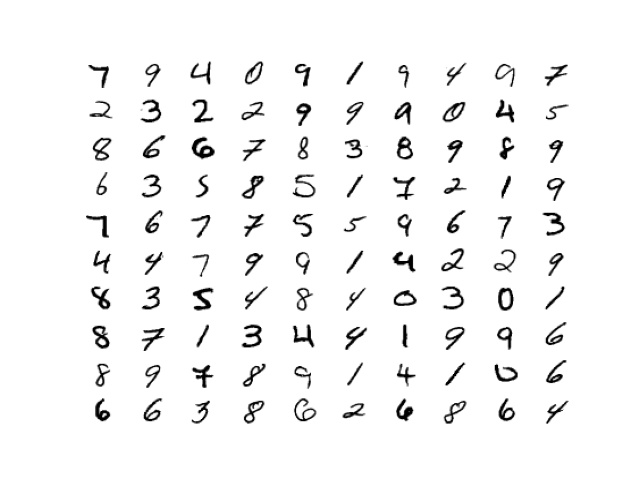 7 9 4 0 9 1 9 4 9 7
2 3 2 2 9 9 9 0 4 5
8 6 6 7 8 3 8 9 8 9
6 3 5 8 5 1 7 2 1 9
7 6 7 7 5 5 9 6 7 3
4 4 7 9 9 1 4 2 2 9
8 3 5 4 8 4 0 3 0 1
8 7 1 3 4 4 1 9 9 6
8 9 7 8 9 1 4 1 0 6
6 6 3 8 6 2 6 8 6 4